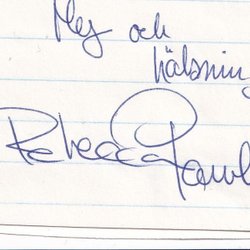 Hej och
hälsning
Rebecca